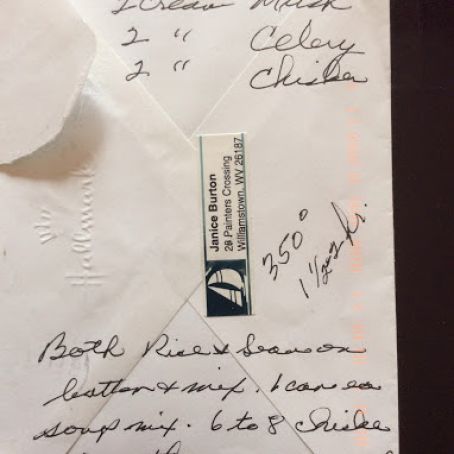 2 Cream Mush
2 " Celery
2 " Chicken
Janice Burton
28 Painters Crossing
Williamstown, WV 26187
350°
Hallmark
Both Rice & Season
& mix. 1 can ea
soup mix. 6 to 8 Chicke